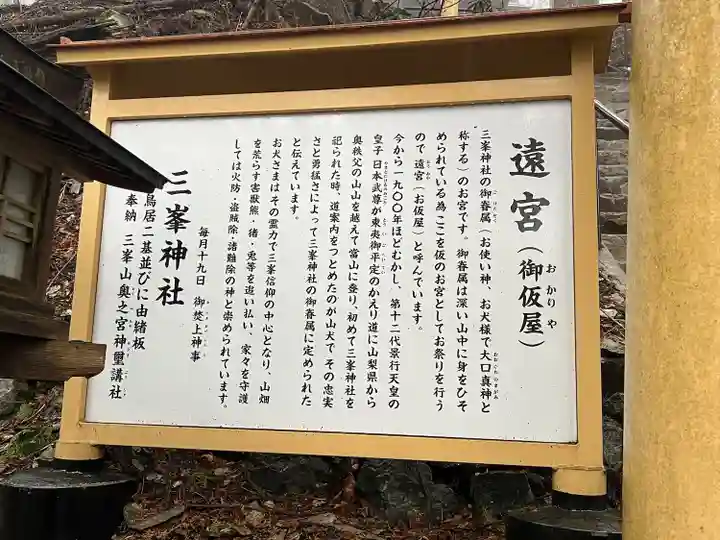 遠宮(御仮屋)
おかりや
三峯神社の御眷属(お使い神、お犬様で大口真神と
称する)のお宮です。御眷属は深い山中に身をひそ
められている為ここを仮のお宮としてお祭りを行う
ので遠宮(お仮屋)と呼んでいます。
今から一九〇〇年ほどむかし、第十二代景行天皇の
皇子日本武尊が東夷御平定のかえり道に山梨県から
奥秩父の山山を越えて當山に登り、初めて三峯神社を
祀られた時、道案内をつとめたのが山犬で その忠実
さと勇猛さによって三峯神社の御眷属に定められた
と伝えています。
お犬さまはその霊力で三峯信仰の中心となり、山畑
を荒らす害獣熊・猪・兎等を追い払い、家々を守護
しては火防・盗賊除・諸難除の神と崇められています。
毎月十九日 御焚上神事
三峯神社
鳥居二基並びに由緒板
奉納 三峯山奥之宮神璽講社